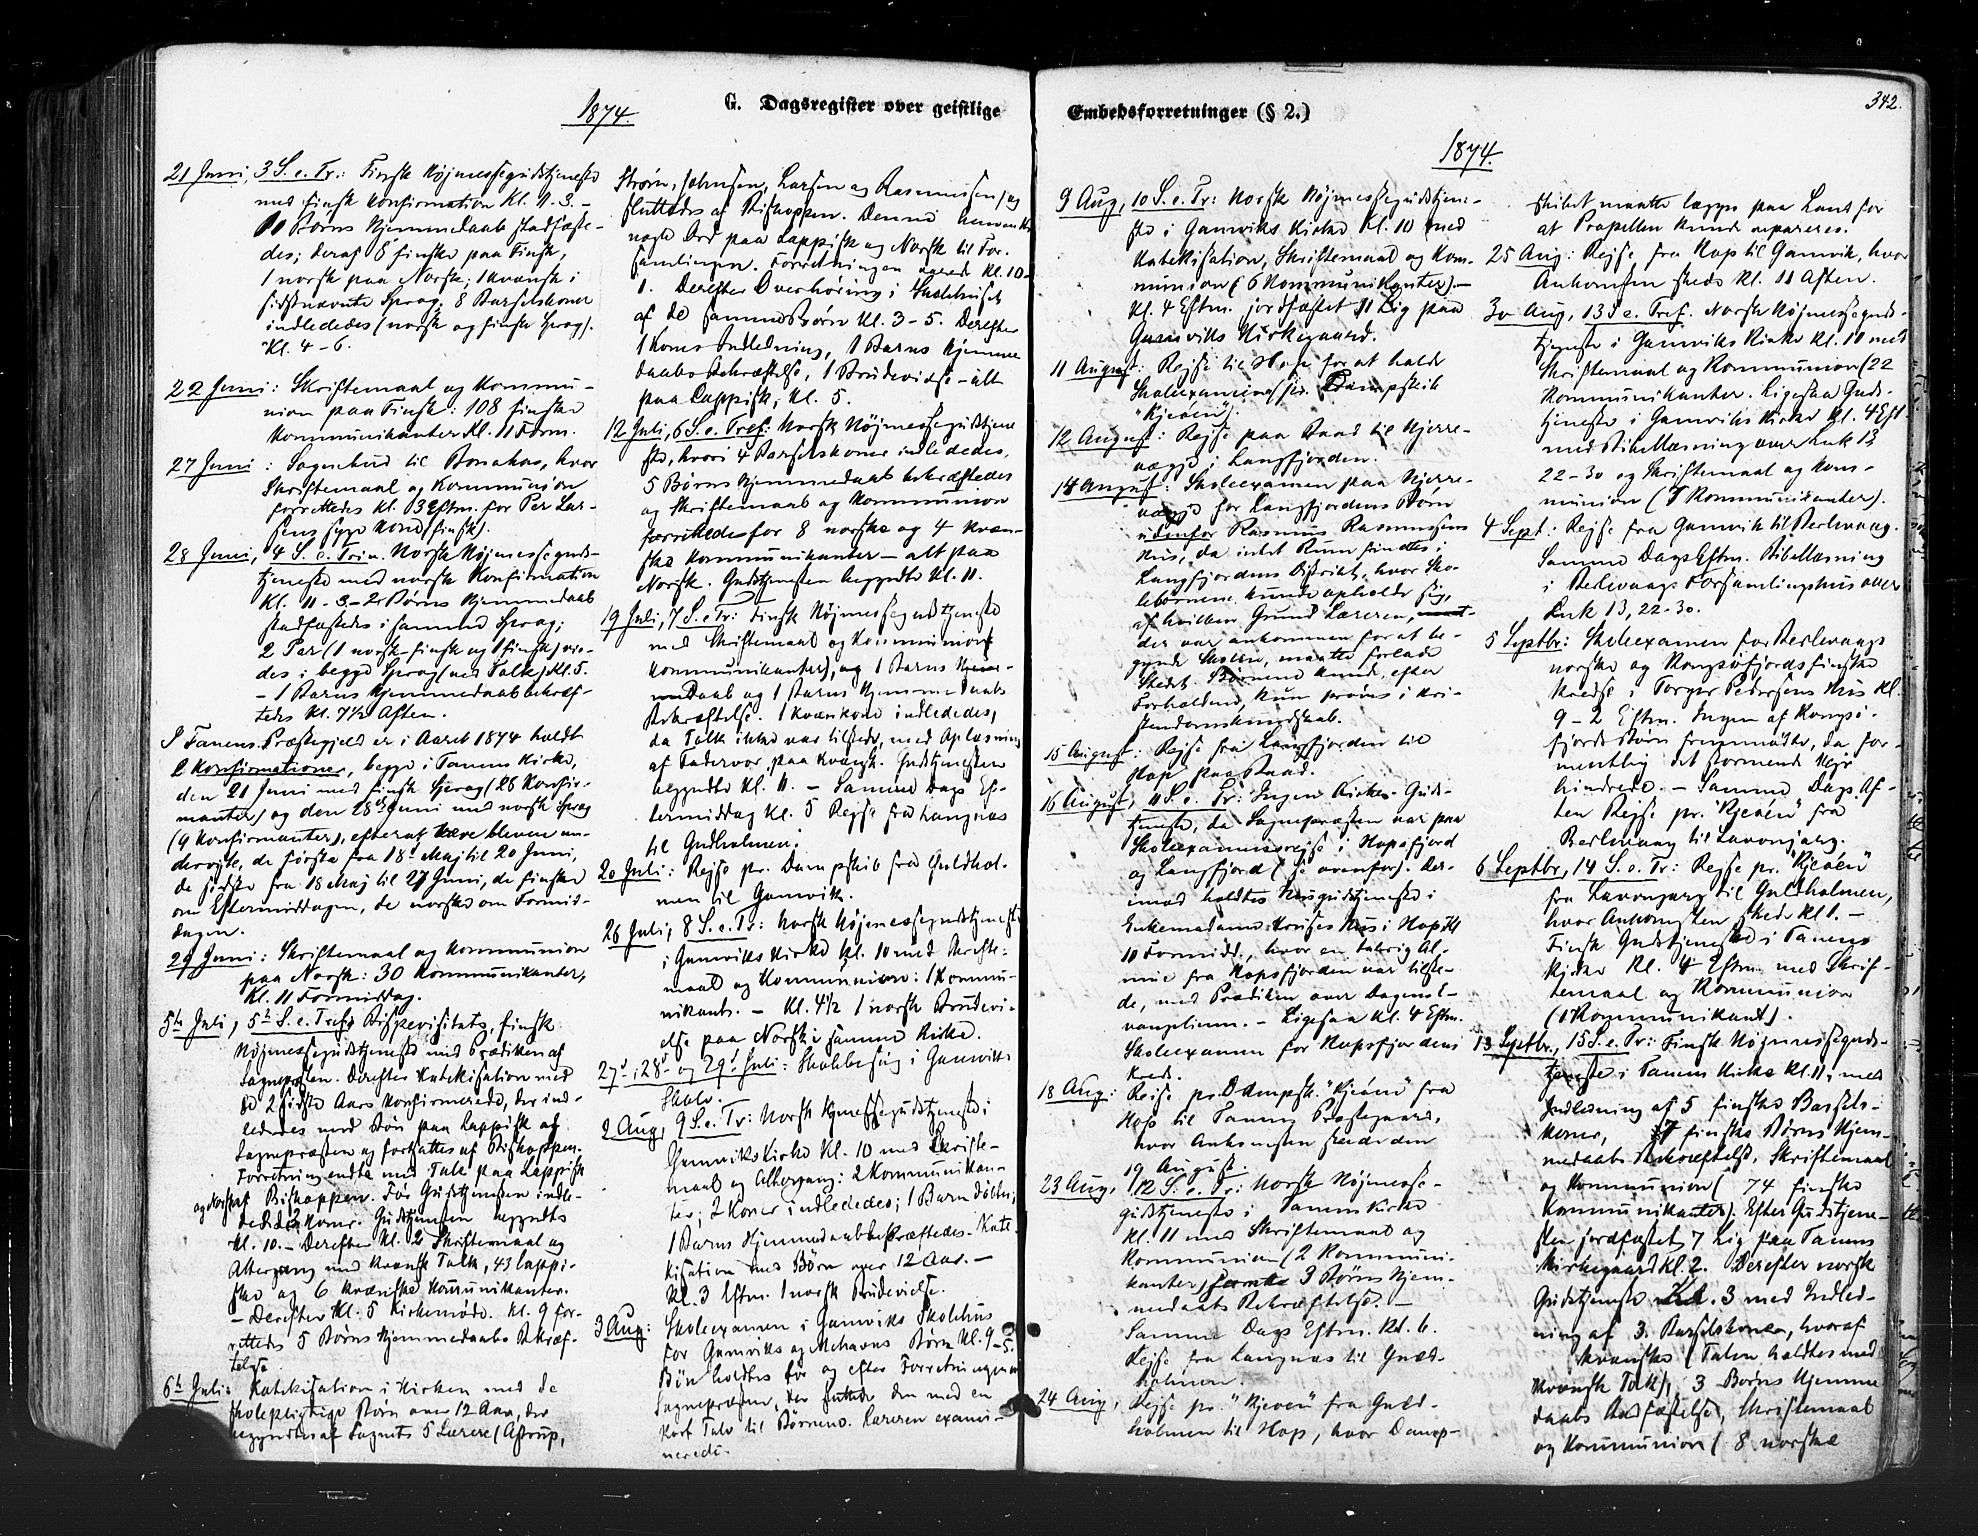 1874.
G. Dagsregister over geistlige
21 Juni, 3 S. e. Tr.: Finsk Højmessegudstjeneste
med finsk Konfirmation Kl. 11-3.-
10 Børns Hjemmedaab stadfæste-
des; deraf 8 finske paa Finsk,
1 norsk paa Norsk; 1 kvænsk i
sidstnævnte Sprog; 8 Barselskoner
indlededes (norsk og finsk Sprog).
Kl. 4-6.
22 Juni: Skriftemaal og Kommu-
nion paa Finsk: 108 finske
Kommunikanter Kl. 11 Form.
27 Juni: Sognebud til Bonakas, hvor
Skriftemaal og Kommunion
forrettedes Kl. 3 Eftm. for Per Lar-
sens syge Kone (finsk).
28 Juni, 4 S. e. Trin. Norsk Højmesseguds-
tjeneste med norsk Konfirmation
Kl. 11-3.- 2 Børns Hjemmedaab
stadfæstedes i samme Sprog;
2 Par (1 norsk-finsk og 1 finsk) vie-
des i begge Sprog (ved Tolk) Kl. 5.
- 1 Barns Hjemmedaab bekræf-
tedes Kl. 7½ Aften.
I Tanens Præstegjeld er i Aaret 1874 holdt
2 Konfirmationer, begge i Tanens Kirke,
den 21 Juni med finsk Sprog (26 Konfir-
manter) og den 28de Juni med norsk Sprog
(9 Konfirmanter), efterat være bleven un-
dervist, de første fra 18de Maj til 20 Juni,
de sidste fra 18 Maj til 27 Juni, de finske
om Eftermiddagen, de norske om Formid-
dagen.
29 Juni: Skriftemaal og Kommunion
paa Norsk: 30 Kommunikanter,
Kl. 11 Formiddag.
5te Juli, 5te S. e. Tref. Bispevisitats, finsk
Højmessegudstjeneste med Prædiken af
Sognepræsten. Derefter Katekisation med
de 2 sidste Aars Konfirmerede, der ind-
lededes med Bøn paa Lappisk af
Sognepræsten og fortsattes af Biskoppen.
Forretning endte med Tale paa Lappisk
og Norsk af Biskoppen. Før Gudstjenesten indle-
dedes 2 Koner. Gudstjenesten begyndte
Kl. 10.- Derefter Kl. 2 Skriftemaal og
Altergang med kvænsk Tolk, 43 lappi-
ske og 6 kvænske Kommunikanter.
- Derefter Kl. 5 Kirkemøde. Kl. 9 for-
rettedes 5 Børns Hjemmedaabs Bekræf-
telse.
6te Juli: Katekisation i Kirken med de
skolepligtige Børn over 12 Aar, der
begyndtes af Sognets 5 Lærere (Astrup,
Strøm, Johnsen, Larsen og Rasmussen) og
sluttedes af Biskoppen. Denne henvendte
nogle Ord paa Lappisk og Norsk til For-
samlingen. Forretningen varede Kl. 10-
1. Derefter Overhøring i Skolehuset
af de samme Børn Kl. 3-5. Derefter
1 Kones Indledning, 1 Barns Hjemme
daabs Bekræftelse, 1 Brudevielse - alt
paa Lappisk, Kl. 5.
12 Juli, 6 S. e. Tref: Norsk Højmessegudstjene
ste, hvori 4 Barselskoner indlededes,
5 Børns Hjemmedaab bekræftedes
og Skriftemaal og Kommunion
forrettedes for 8 norske og 4 kvæn-
ske Kommunikanter - alt paa
Norsk. Gudstjenesten begyndte Kl. 11.
19 Juli, 7 S. e. Tr: Finsk Højmessegudstjeneste
med Skriftemaal og Kommunion
Kommunikanter), og 1 Barns Hjem-
medaab og 1 Barns Hjemmedaabs
Bekræftelse. 1 Kvænkone indlededes,
da Tolk ikke var tilstede, med Oplæsning
af Fadervor paa Kvænsk. Gudstjenesten
begyndte Kl. 11. - Samme Dags Ef-
termiddag Kl. 5 Rejse fra Langnæs
til Guldholmen.
20 Juli: Rejse pr. Dampskib fra Guldhol-
men til Gamvik.
26 Juli, 8 S. e. Tr: Norsk Højmessegudstjeneste
i Gamviks Kirke Kl. 10 med Skrifte-
maal og Kommunion: 1 Kommu-
nikant. - Kl. 4½ 1 norsk Brudevi-
else paa Norsk i samme Kirke.
27de, 28de og 29de Juli: Skolebesøg i Gamviks
Skole.
2 Aug, 9 S. e. Tr: Norsk Højmessegudstjeneste i
Gamviks Kirke Kl. 10 med Skrifte-
maal og Altergang: 2 Kommunikan-
ter; 2 Koner indlededes; 1 Barn døbtes;
1 Barns Hjemmedaab bekræftedes. Kate-
kisation med Børn over 12 Aar. -
Kl. 3 Eftm. 1 norsk Brudevielse.
3 Aug: Skoleexamen i Gamviks Skolehus
for Gamviks og Mehavns Børn Kl. 9-5.
Bøn holdtes før og efter Forretningen
Sognepræsten, der sluttede den med en
kort Tale til Børnene. Læreren exami-
nerede.
Embedsforretninger (§ 2.)
342.
1874.
9 Aug, 10 S. e. Tr: Norsk Højmessegudstjene-
ste i Gamviks Kirke Kl. 10 med
Katekisation, Skriftemaal og Kom-
munion (6 Kommunikanter).-
Kl. 4 Eftm. jordfæstet 11 Lig paa
Gamviks Kirkegaard.
11 August: Rejse til Hop for at holde
Skoleexamina (pr. Dampskib
"Kjeøen").
12 August: Rejse paa Baad til Hjerre-
vægge i Langfjorden.
14 August: Skoleexamen paa Hjerre-
vægge for Langfjordens Børn
udenfor Rasmus Rasmussens
Hus, da intet Rum fandtes i
Langfjordens Distrikt, hvor Sko-
lebørnene kunde opholde sig,
af hvilken Grund Læreren,
der var ankommen for at be-
gynde Skolen, maatte forlade
Stedet. Børnene kunde, efter
Forholdene, kun prøves i Kri-
stendomskundskab.
15 August: Rejse fra Langfjorden til
Hop paa Baad.
16 August, 11 S. e. Tr: Ingen Kirke-Guds-
tjeneste, da Sognepræsten var paa
Skoleexamensrejse i Hopsfjord
og Langfjord (se ovenfor). Der-
imod holdtes Husgudstjeneste i
Enkemadame Kruses Hus i Hop Kl
10 Formidd., hvor en talrig Al-
mue fra Hopsfjorden var tilste-
de, med Prædiken over Dagens E-
vangelium. - Ligesaa Kl. 4 Eftm.
Skoleexamen for Hopsfjordens
Kreds.
18 Aug: Rejse pr. Dampsk. "Kjeøen" fra
Hop til Tanens Præstegaard,
hvor Ankomsten skede den
19 August.
23 Aug, 12 S. e. Tr: Norsk Højmesse-
gudstjeneste i Tanens Kirke
Kl. 11 med Skriftemaal og
Kommunion (2 Kommuni-
kanter) samt 3 Børns Hjem-
medaabs Bekræftelse. -
Samme Dags Eftm. Kl. 6.
Rejse fra Langnæs til Guld-
holmen.
24 Aug, Rejse pr. "Kjeøen" fra Guld-
holmen til Hop, hvor Damp-
skibet maatte lægges paa Land for
at Propellen kunde repareres.
25 Aug: Rejse fra Hop til Gamvik, hvor
Ankomsten skede Kl. 11 Aften.
30 Aug, 13 S. e. Tref. Norsk Højmesseguds-
tjeneste i Gamviks Kirke Kl. 10 med
Skriftemaal og Kommunion (22
Kommunikanter. Ligesaa Guds-
tjeneste i Gamviks Kirke Kl. 4 Eft
med Bibellæsning over Luk 13
22-30 og Skriftemaal og Kom-
munion (7 Kommunikanter).
4 Sept: Rejse fra Gamvik til Berlevaag.
Samme Dags Eftm. Bibellæsning
i Berlevaags Forsamlingshus over
Luk 13, 22-30.
5 Septbr: Skoleexamen for Berlevaags
norske og Kongsøfjords finske
Kredse i Torger Pedersens Hus Kl.
9-2 Eftm. Ingen af Kongsø-
fjords Børn fremmødte, da for-
mentlig det stormende Vejr
hindrede. - Samme Dags Af-
ten Rejse pr. "Kjeøen" fra
Berlevaag til Lavonjarg.
6 Septbr, 14 S. e. Tr: Rejse pr. "Kjeøen"
fra Lavonjarg til Guldholmen,
hvor Ankomsten skede Kl. 1. -
Finsk Gudstjeneste i Tanens
Kirke Kl. 4 Eftm. med Skrif-
temaal og Kommunion
(1 Kommunikant).
13 Septbr., 15 S. e. Tr: Finsk Højmesseguds-
tjeneste i Tanens Kirke Kl. 11, med
Indledning af 5 finske Barsels-
koner, 7 finske Børns Hjem-
medaabs Bekræftelse, Skriftemaal
og Kommunion ( 74 finske
Kommunikanter). Efter Gudstjene-
sten jordfæstet 7 Lig paa Tanens
Kirkegaard Kl. 2. Derefter norsk
Gudstjeneste Kl. 3 med Indled-
ning af 3 Barselskoner, hvoraf
1 kvænske (Talen holdtes med
Kvænsk Tolk), 3 Børns Hjemme
daabs Stadfæstelse, Skriftemaal
og Kommunion ( 8 norske